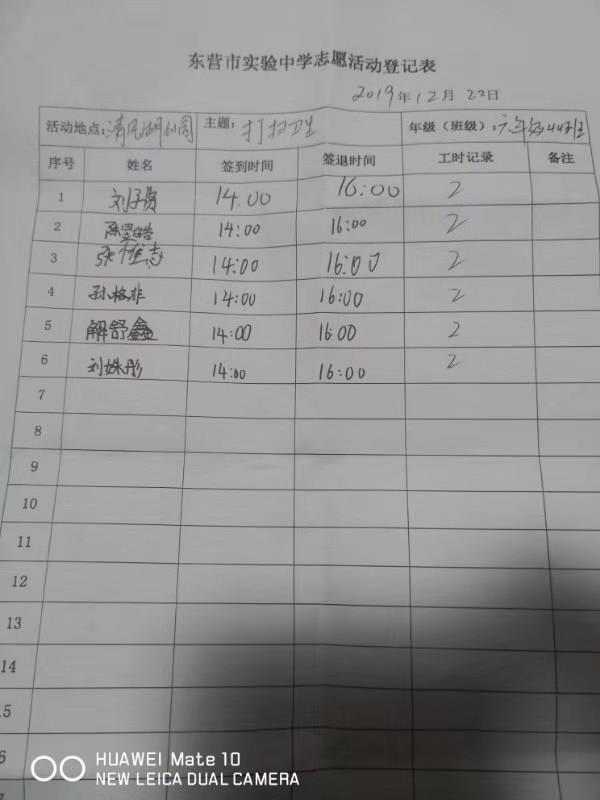 东营市实验中学志愿活动登记表
2019年12月22日
活动地点:清风湖公园 主题:打扫卫生 年级(班级):六年级44班
序号 姓名 签到时间 签退时间 工时记录 备注
1 刘子贤 14:00 16:00 2
2 14:00 16:00 2
3 张耀志 14:00 16:00 2
4 孙格非 14:00 16:00 2
5 解舒鑫 14:00 16:00 2
6 刘姝彤 14:00 16:00 2
7
8
9
10
11
12
13
14
15
6
HUAWEI Mate 10
NEW LEICA DUAL CAMERA